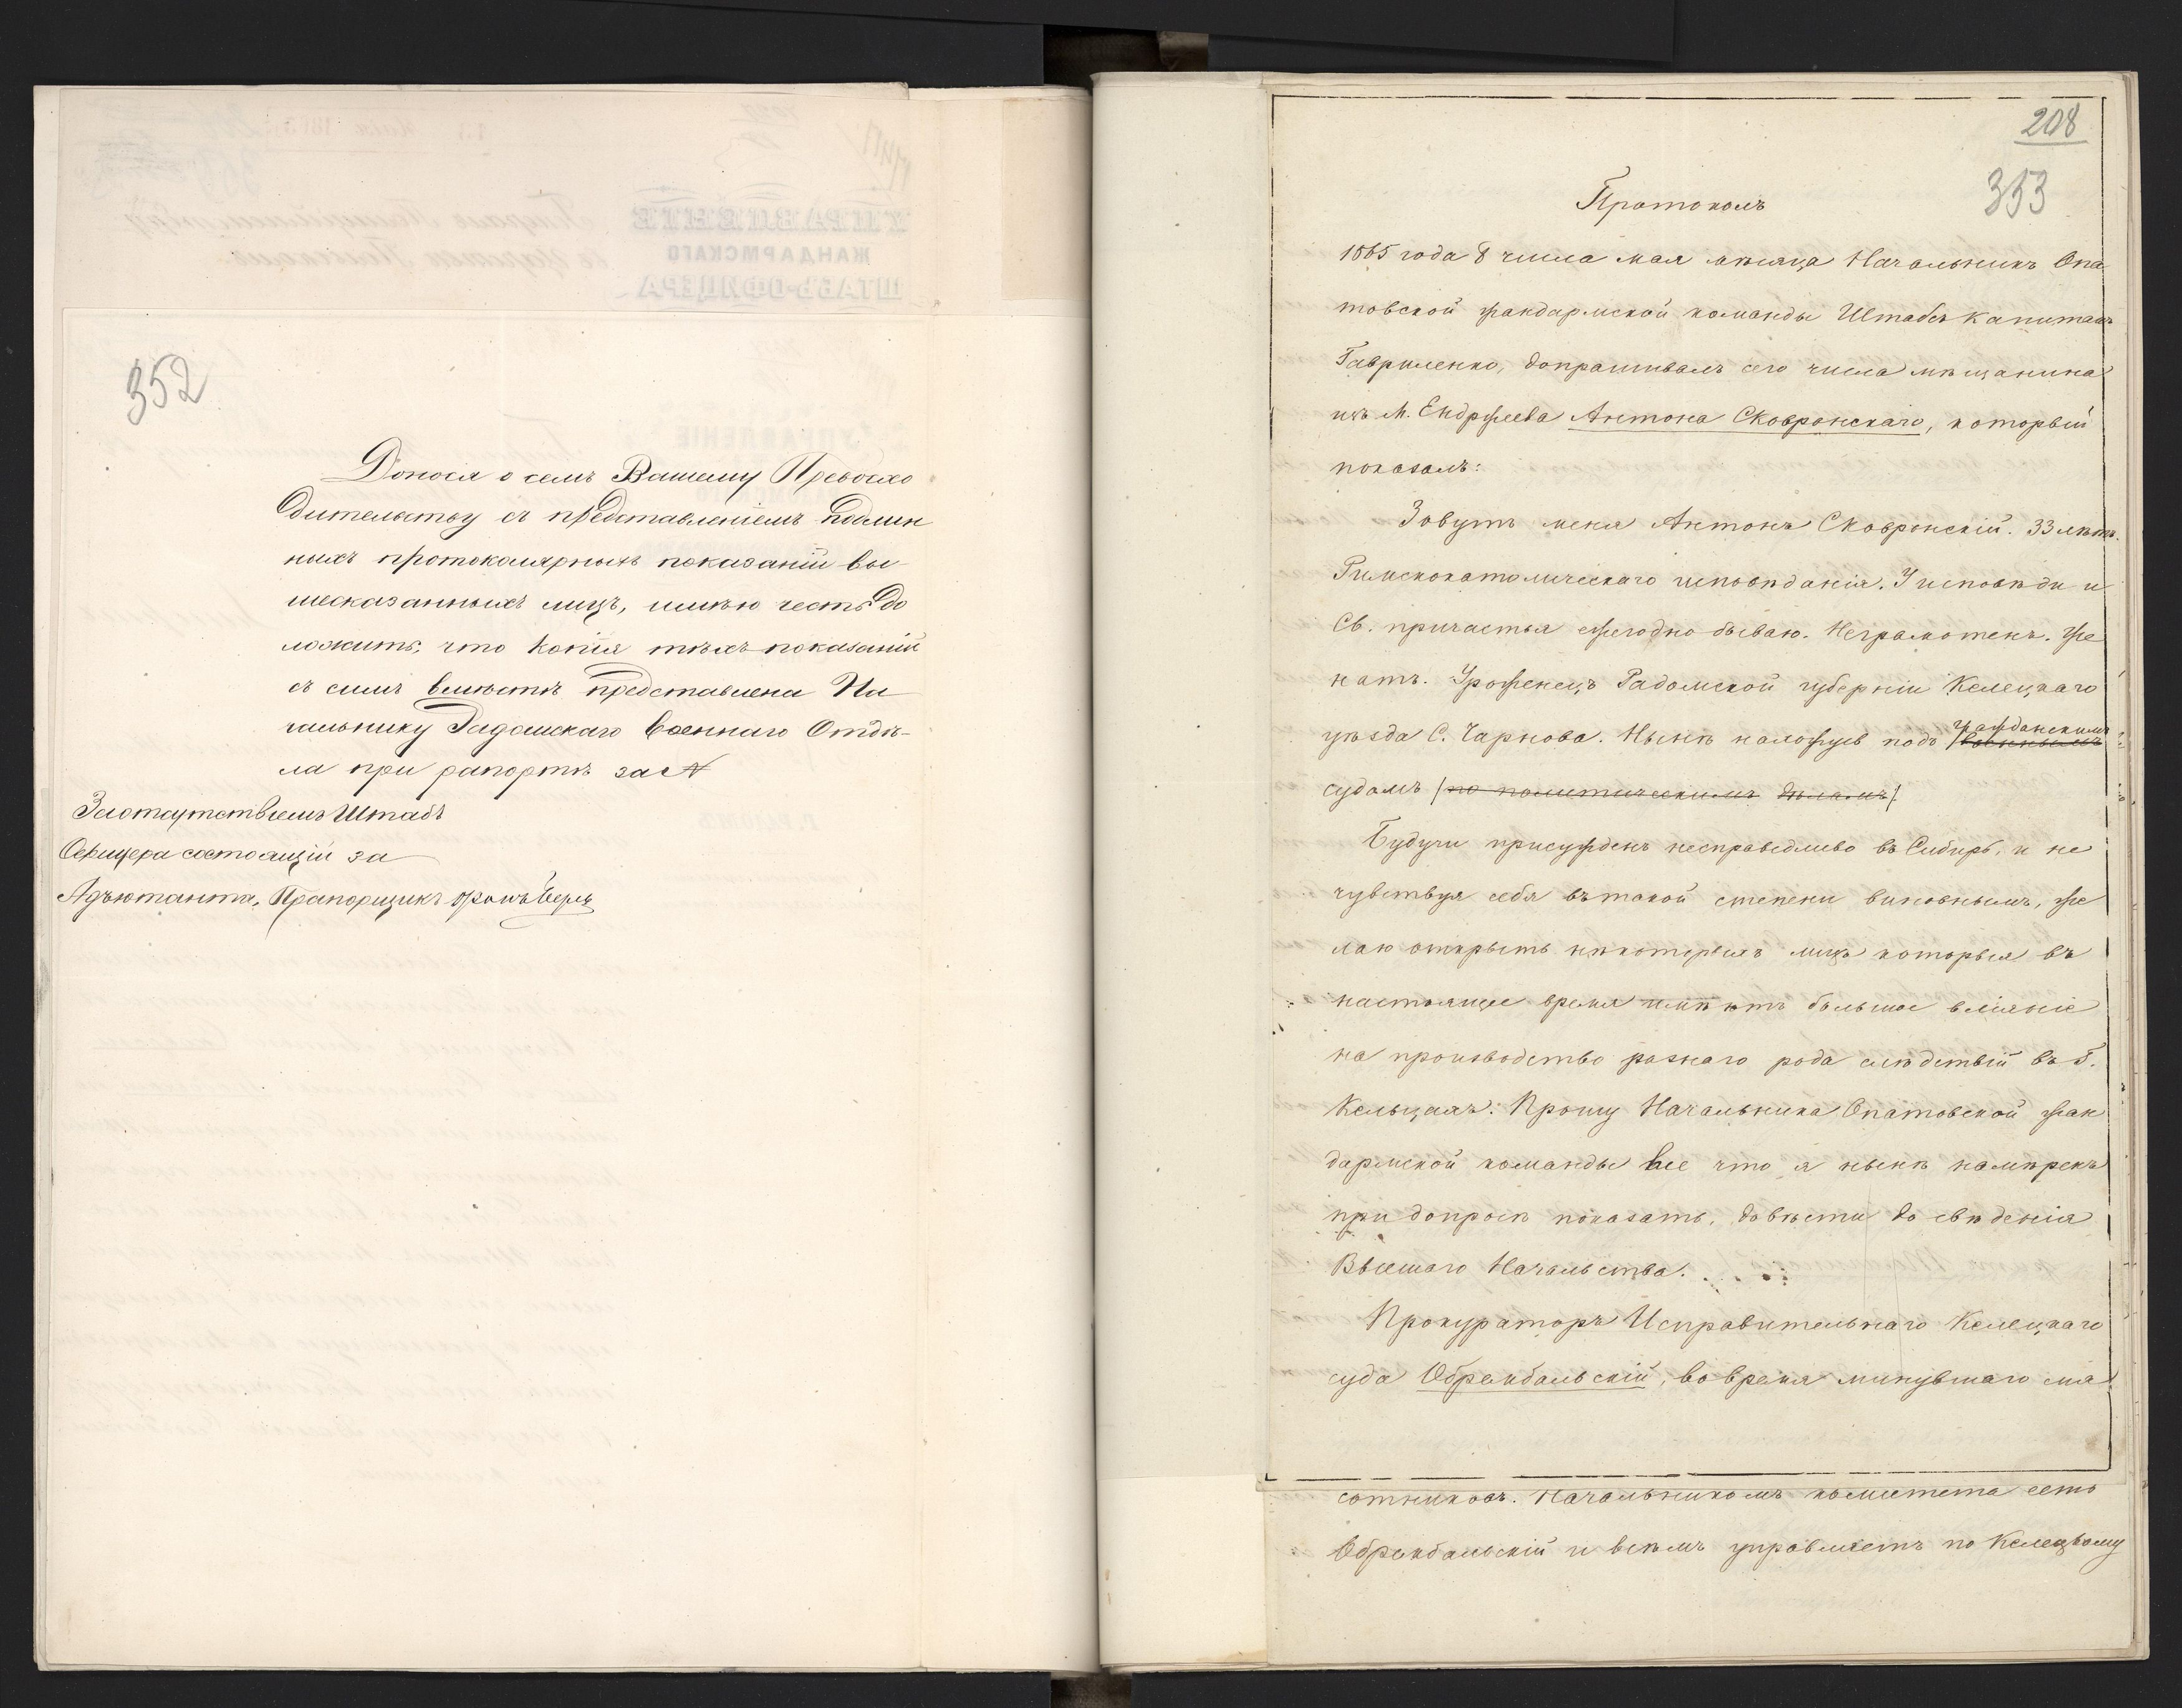 352
Донося о семъ Вашему Превосхо
дительству съ представленіемъ подлин
ныхъ протоколярныхъ показаній вы-
шесказанныхъ лицъ, имѣю честь до
ложить; что копія тѣхъ показаній
съ симъ вмѣстѣ представлена На
чальнику Радомскаго Военнаго Отдѣ-
ла при рапортѣ за №
За отсутствіемъ Штабъ
Офицера состоящій за
Адъютанта, Прапорщикъ
208
353
Протоколъ
1865 года 8 числа мая мѣсяца Начальникъ Опа
товской жандармской команды Штабсъ Капитанъ
Гавриленко, допрашивалъ сего числа мѣщанина
изъ М. Ендржеева Антона Сковронскаго, который
показалъ:
Зовутъ меня Антонъ Сковронскій. 33 лѣтъ.
Римскокатолическаго исповѣданія. У исповѣди и
Св. причастья ежегодно бываю. Неграмотенъ. Же
натъ. Уроженецъ Радомской губерніи Келецкаго
гражданскимъ
уѣзда С. Чарнова. Нынѣ нахожусь подъ военнымъ
судомъ (по политическимъ дѣламъ)
Будучи присужденъ несправедливо въ Сибирь, и не
чувствуя себя въ такой степени виновнымъ, же
лаю открыть нѣкоторыхъ лицъ которыя въ
настоящее время имѣютъ большое вліяніе
на производство разнаго рода слѣдствій въ Г.
Кельцахъ: Прошу Начальника Опатовской жан
дармской команды все что я нынѣ намѣренъ
при допросѣ показать, довѣсти до свѣденія
Высшаго Начальства.
Прокураторъ Исправительнаго Келецкаго
суда Обрембальскій, во время минувшаго мя
сотниковъ. Начальникомъ комитета есть
Обрембальскій и всѣмъ управляетъ по Келецкому